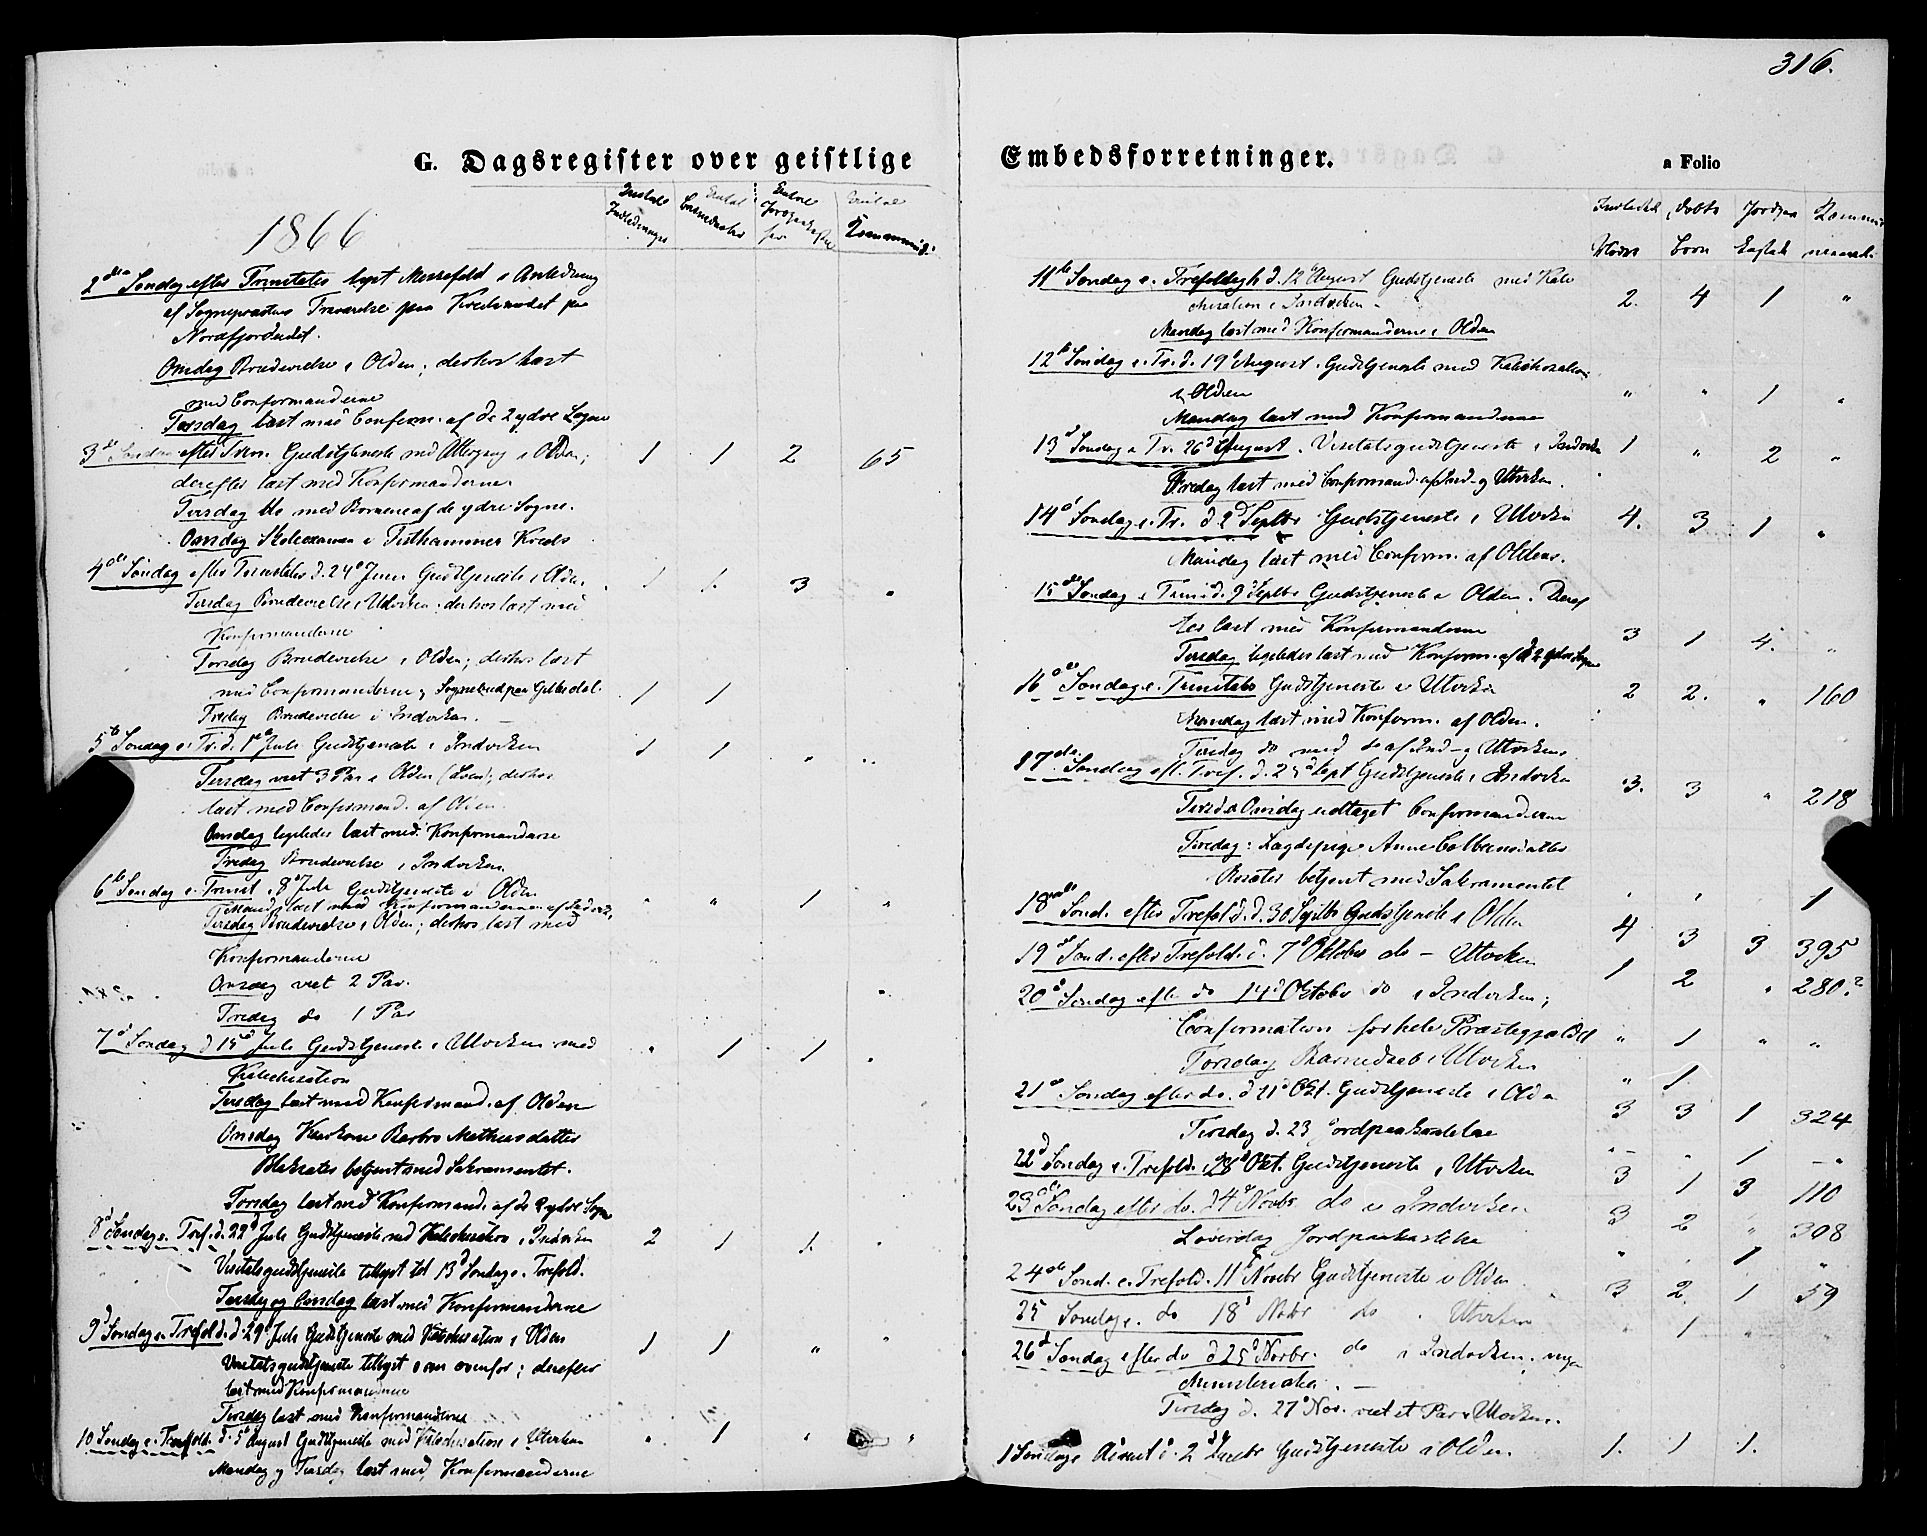 316.
G. Dagsregister over geistlige
Embedsforretninger.
a Folio
1866
2den Søndag efter Trinitatis lyst Messefald i Anledning
af Sognepræstens Fraværelse paa Kredsmødet paa
Nordfjordeidet.
Onsdag Brudevielse i Olden; derhos læst
med Confirmanderne
Torsdag læst med Confirm. af de 2 ydre Sogne
3de Søndag efter Trin. Gudstjeneste med Altergang i Olden; 1 1 2 65
derefter læst med Konfirmanderne
Tirsdag do med Børnene af de ydre Sogne.
Onsdag Skoleexamen i Kreds
4de Søndag efter Trinitatis d. 24d Juni Gudstjeneste i Olden. 1 1. 3 "
Tirsdag Brudevielse i Utviken; derhos læst med
Konfirmanderne
Torsdag Brudevielse i Olden; derhos læst
med Confirmanderne og Sognebud paa 1 1
Fredag Brudevielse i Indviken. —
5te Søndag e. Tr. d. 1ste Juli Gudstjeneste i Indviken 1 1 " "
Tirsdag viet 3 Par i Olden (Loen); derhos
læst med Confirmand. af Olden.
Onsdag ligeledes læst med Konfirmanderne
Fredag Brudevielse i Indviken.
6te Søndag e. Trinit. 8d Juli Gudstjeneste i Olden " " 1 "
læst med Konfirmanderne af
Tirsdag Brudevielse i Olden; derhos læst med
Konfirmanderne
Onsdag viet 2 Par.
Fredag do 1 Par
7d Søndag d 15d Juli Gudstjeneste i Utviken med " 1 1 "
Katechisation
Tirsdag læst med Konfirmand. af Olden
Onsdag Barbro Mathiasdatter
betjent med Sakramentet.
Torsdag læst med Konfirmand. af de 2 ydre Sogne
8d Søndag e. Tref. d. 22d Juli Gudstjeneste med Katechisation i Indviken 2 1 1. "
Visitatsgudstjeneste tillyst til 13d Søndag e. Trefold.
Tirsdag og Onsdag læst med Konfirmanderne
9d Søndag e. Trefold. d. 29d Juli Gudstjeneste med Katechisation i Olden 1 1 " "
Visitatsgudstjeneste tillyst som ovenfor; derefter
læst med Konfirmanderne
Tirsdag læst med Konfirmanderne
10 Søndag e. Trefold. d. 5d August Gudstjeneste med Katechisation i Utviken " 1 " "
Mandag og Tirsdag læst med Konfirmanderne
11te Søndag e. Trefoldigh d. 12d August Gudstjeneste med Kate 2. 4 1 "
chisation i Indviken.
Mandag læst med Konfirmanderne i Olden
12te Søndag e. Tr. d. 19d August. Gudstjeneste med Katechisation
i Olden " " 1 "
Mandag læst med Konfirmanderne
13d Søndag e. Tr. 26d August. Visitatsgudstjeneste i Indviken 1 " 2 "
Fredag læst med Confirmand. af Ind- og Utviken.
14d Søndag e. Tr. d 2d Septbr Gudstjeneste i Utviken 4. 3 1 "
Mandag læst med Confirm. af Olden.
15de Søndag e Trin: d. 9d Septbr Gudstjeneste i Olden. Deref
ter læst med Konfirmanderne 3 1 4. "
Tirsdag ligeledes læst med Konfirm. af de 2 ydre Sogne
16de Søndag e. Trinitatis Gudstjeneste i Utviken 2 2. " 160
Mandag læst med Konfirm. af Olden.
Tirsdag do med do af Ind- og Utviken
17de Søndag eft. Tref. d. 23d Sept Gudstjeneste i Indviken 3. 3 " 218
Tirsd & Onsdag udtaget Confirmanderne
Tirsdag: Lægdepige Anne
betjent med Sakramentet " " 1
18de Sønd. efter Trefold. d. 30 Septbr Gudstjeneste i Olden 4 3 3 395
19d Sønd. efter Trefold. d. 7d Oktober do — Utviken 1 2 " 280?
20d Søndag efter do 14d Oktober do i Indviken;
Confirmation for hele Præstegjældet " 1 " "
Torsdag Barnedaab i Utviken " 1.
21d Søndag efter do. d 21d Okt. Gudstjeneste i Olden 3 3 1 324
Tirsdag d. 23 Jordpaakastelse " " 1 "
22d Søndag e. Trefold. 28d Okt. Gudstjeneste i Utviken 3 1 3 110
23de Søndag efter do. d 4d Novbr do i Indviken 3 2 " 308
Løverdag Jordpaakastelse " 1 "
24de Sønd. e. Trefold. 11d Novbr Gudstjeneste i Olden 3 2. 1 59
25 Søndag e. do 18d Nvbr do i Utviken " 1 " "
26d Søndag efter do d 25d Novbr. do i Indviken. ingen
Ministerialia. —
Tirsdag d. 27d Nov. viet et Par i Utviken.
1 Søndag e Advent d. 2d Decbr Gudstjeneste i Olden. 1. 1 1.